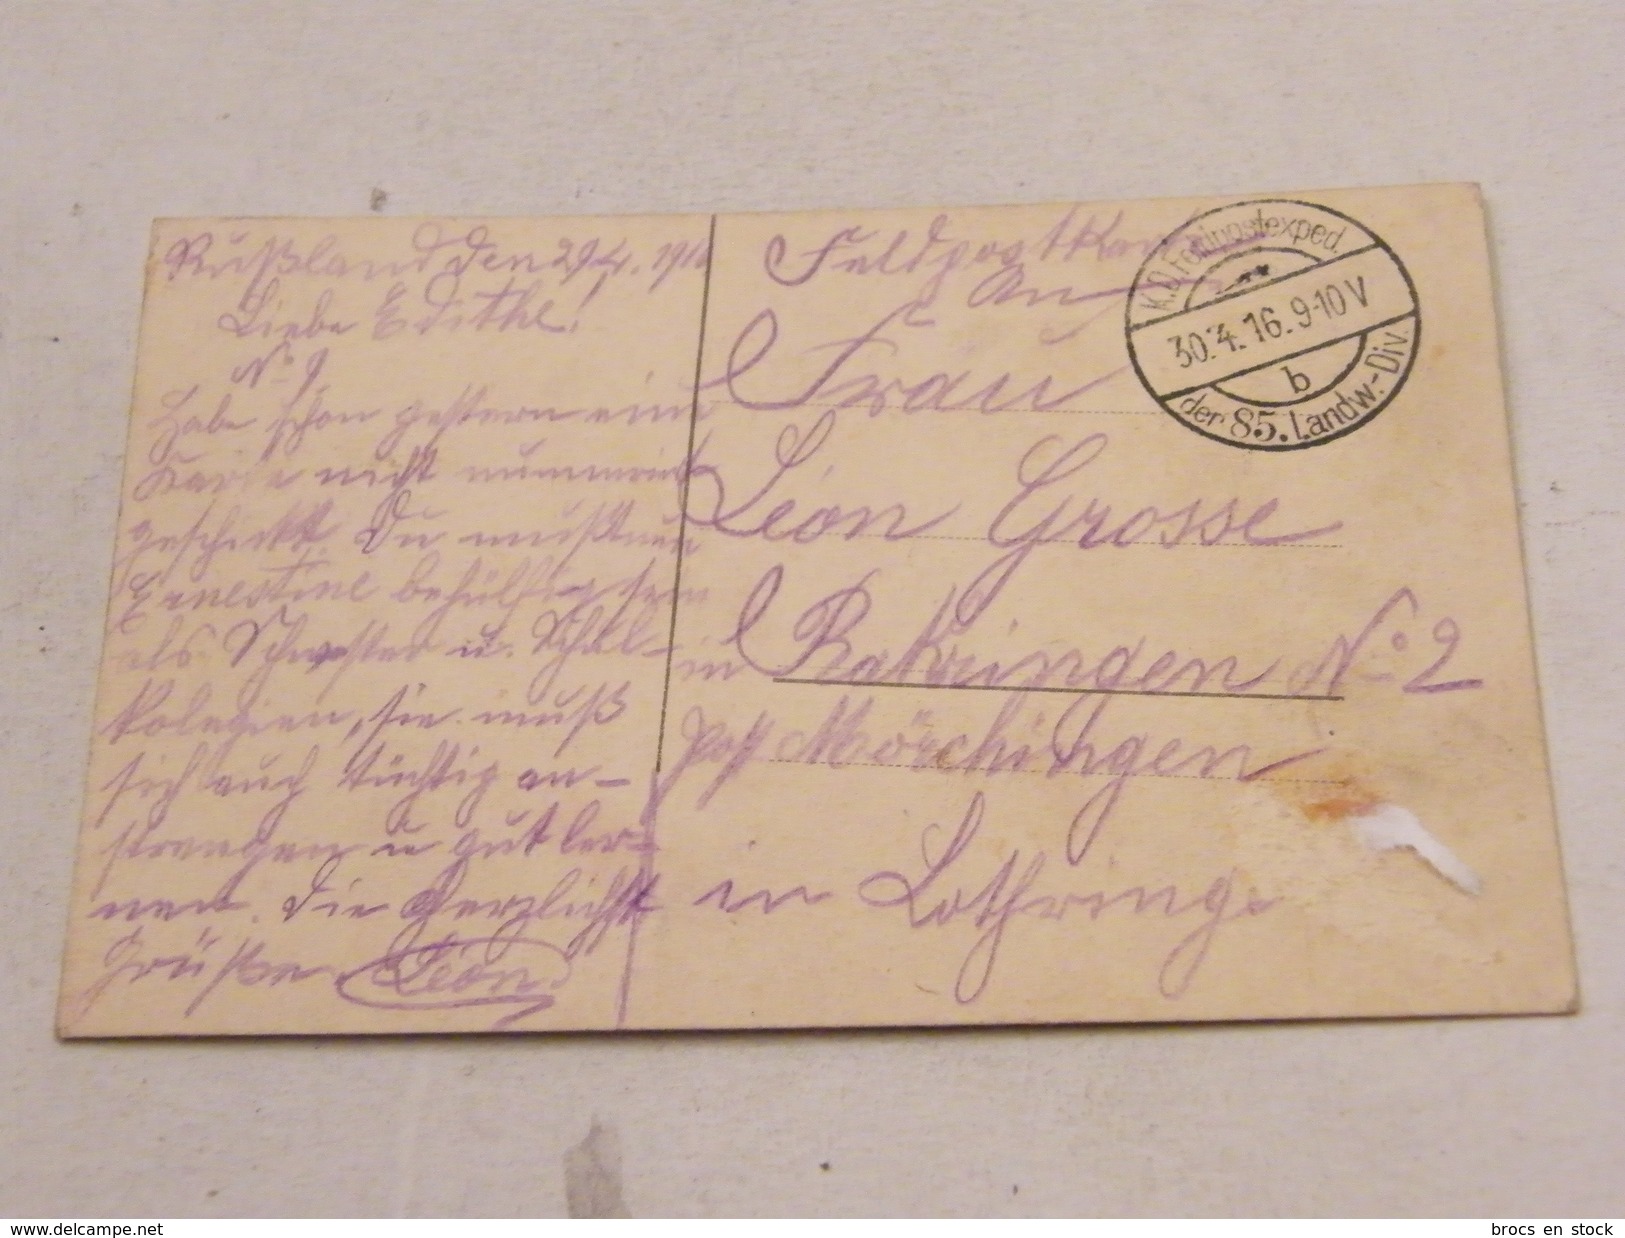 Rußland den 29/4. 1916
Liebe Edithe!
No 9
Habe schon gestern eine
Karte nicht nummeriert
geschickt. Du mußt nun
Ernestine behülflig sein
als Schwester u. Schul-
kolegien, sie muß
sich auch tüchtig an-
strengen u gut ler-
nen. Die Herzlichst
Grüße Léon
Feldpostkarte
An
Frau
Léon Grosse
in Rakringen No 2
post Mörchingen
in Lothringe
K.D. Feldpostexped.
30.4.16. 9-10 V
b
der 85. Landw.-Div.
delcampe.net
brocs en stock